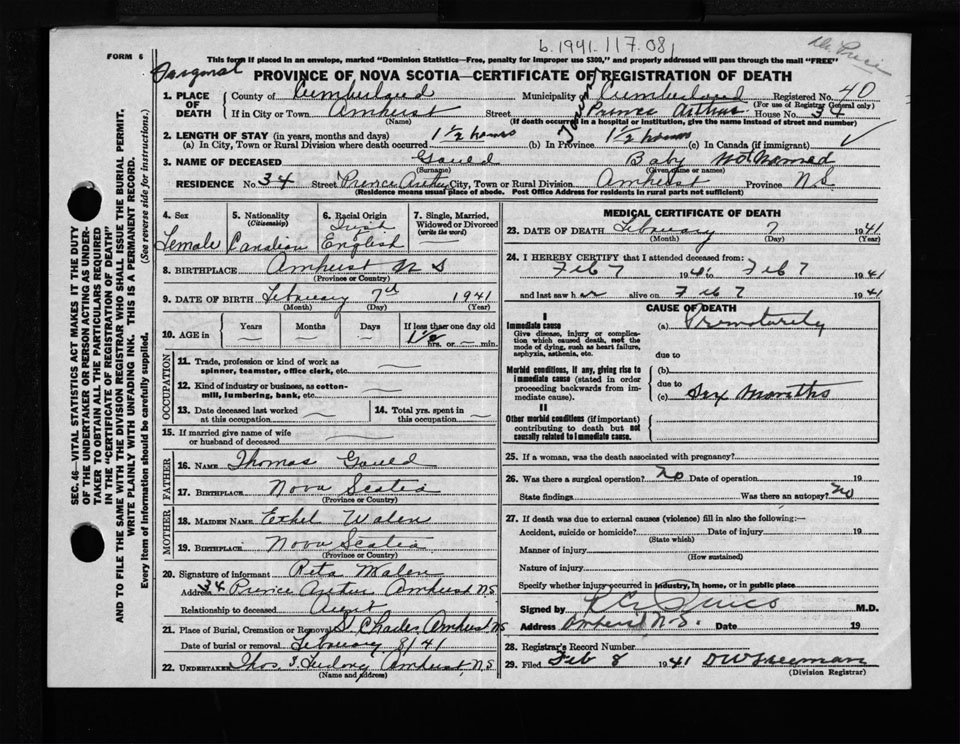 b. 1941. 117.081
FORM 6
This form if placed in an envelope, marked "Dominion Statistics—Free, penalty for improper use $300," and properly addressed will pass through the mail "FREE"
PROVINCE OF NOVA SCOTIA—CERTIFICATE OF REGISTRATION OF DEATH
1. PLACE OF DEATH County of Cumberland Municipality of Cumberland Registered No. 40
(For use of Registrar General only)
If in City or Town Amherst Street Prince Arthur House No. 34
(Name) (If death occurred in a hospital or institution, give the name instead of street and number)
2. LENGTH OF STAY (in years, months and days)
(a) In City, Town or Rural Division where death occurred 1½ hours (b) In Province 1½ hours (c) In Canada (if immigrant)
3. NAME OF DECEASED Gould Baby not named
(Surname) (Given name or names)
RESIDENCE No. 34 Street Prince Arthur City, Town or Rural Division Amherst Province N.S
(Residence means usual place of abode. Post Office Address for residents in rural parts not sufficient)
4. Sex Female
5. Nationality (Citizenship) Canadian
6. Racial Origin Irish English
7. Single, Married, Widowed or Divorced (write the word) —
8. BIRTHPLACE Amherst N S
(Province or Country)
9. DATE OF BIRTH February 7th 1941
(Month) (Day) (Year)
10. AGE in Years Months Days If less than one day old
— — — 1½ hrs. or — min.
OCCUPATION
11. Trade, profession or kind of work as spinner, teamster, office clerk, etc. —
12. Kind of industry or business, as cotton-mill, lumbering, bank, etc. —
13. Date deceased last worked at this occupation —
14. Total yrs. spent in this occupation —
15. If married give name of wife or husband of deceased —
FATHER
16. NAME Thomas Gould
17. BIRTHPLACE Nova Scotia
(Province or Country)
MOTHER
18. MAIDEN NAME Ethel Walen
19. BIRTHPLACE Nova Scotia
(Province or Country)
20. Signature of informant Reta Walen
Address 34 Prince Arthur Amherst N S
Relationship to deceased Aunt
21. Place of Burial, Cremation or Removal St Charles Amherst NS
Date of burial or removal February 8/41
22. UNDERTAKER Thos. J Furlong Amherst, N.S
(Name and address)
MEDICAL CERTIFICATE OF DEATH
23. DATE OF DEATH February 7 1941
(Month) (Day) (Year)
24. I HEREBY CERTIFY that I attended deceased from:
Feb 7 1941 to Feb 7 1941
and last saw her alive on Feb 7 1941
CAUSE OF DEATH
I
Immediate cause
Give disease, injury or complication which caused death, not the mode of dying, such as heart failure, asphyxia, asthenia, etc.
(a) Prematurity
due to
Morbid conditions, if any, giving rise to immediate cause (stated in order proceeding backwards from immediate cause).
(b)
due to
(c) Six Months
II
Other morbid conditions (if important) contributing to death but not causally related to immediate cause.
25. If a woman, was the death associated with pregnancy?
26. Was there a surgical operation? no Date of operation 19
State findings Was there an autopsy? no
27. If death was due to external causes (violence) fill in also the following:—
Accident, suicide or homicide? Date of injury 19
(State which)
Manner of injury
(How sustained)
Nature of injury
Specify whether injury occurred in industry, in home, or in public place
Signed by M.D.
Address Amherst N.S. Date 19
28. Registrar's Record Number
29. Filed Feb 8 1941 DW Freeman
(Division Registrar)
SEC. 46—VITAL STATISTICS ACT MAKES IT THE DUTY
OF THE UNDERTAKER OR PERSON ACTING AS UNDER-
TAKER TO OBTAIN ALL THE PARTICULARS REQUIRED
IN THE "CERTIFICATE OF REGISTRATION OF DEATH"
AND TO FILE THE SAME WITH THE DIVISION REGISTRAR WHO SHALL ISSUE THE BURIAL PERMIT.
WRITE PLAINLY WITH UNFADING INK. THIS IS A PERMANENT RECORD.
Every item of information should be carefully supplied. (See reverse side for instructions.)